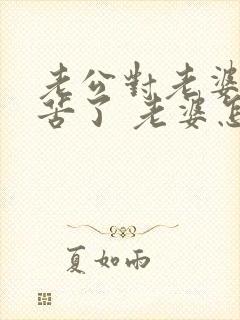 老公對老婆
苦了 老婆怎
夏如雨